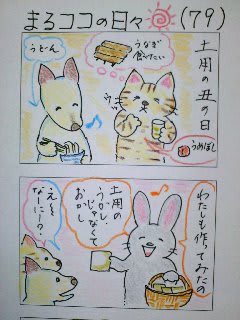 まるココの日々 (79)
土用の丑の日
うなぎ
食べたい
うどん
うめぼし
わたしも作ってみたの
土用の
うかし・
じゃなくて
おかし
え〜
なーにー?